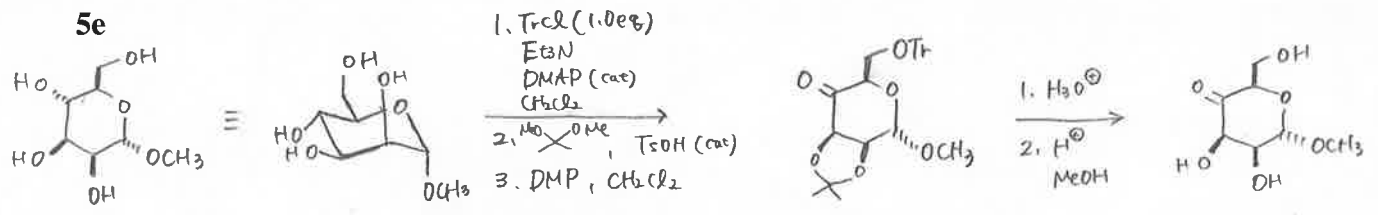 5e
OH
HO
O
HO
OH
OCH3
≡
OH
OH
O
HO
HO
OCH3
1. TrCl (1.0eq)
Et3N
DMAP (cat)
CH2Cl2
2. MeO OMe , TsOH (cat)
3. DMP, CH2Cl2
OTr
O
O
O
O
OCH3
1. H3O⊕
2. H⊕
MeOH
OH
O
O
HO
OH
OCH3